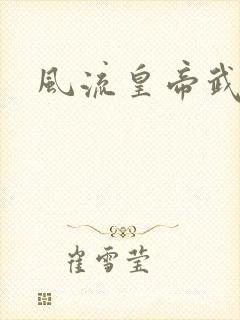 風流皇帝武
崔雪莹